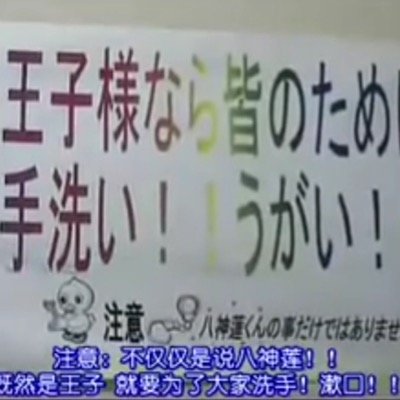 王子様なら皆のため
手洗い！！うがい！
注意 八神蓮くんの事だけではありませ
注意：不仅仅是说八神莲！！
既然是王子 就要为了大家洗手！漱口！！